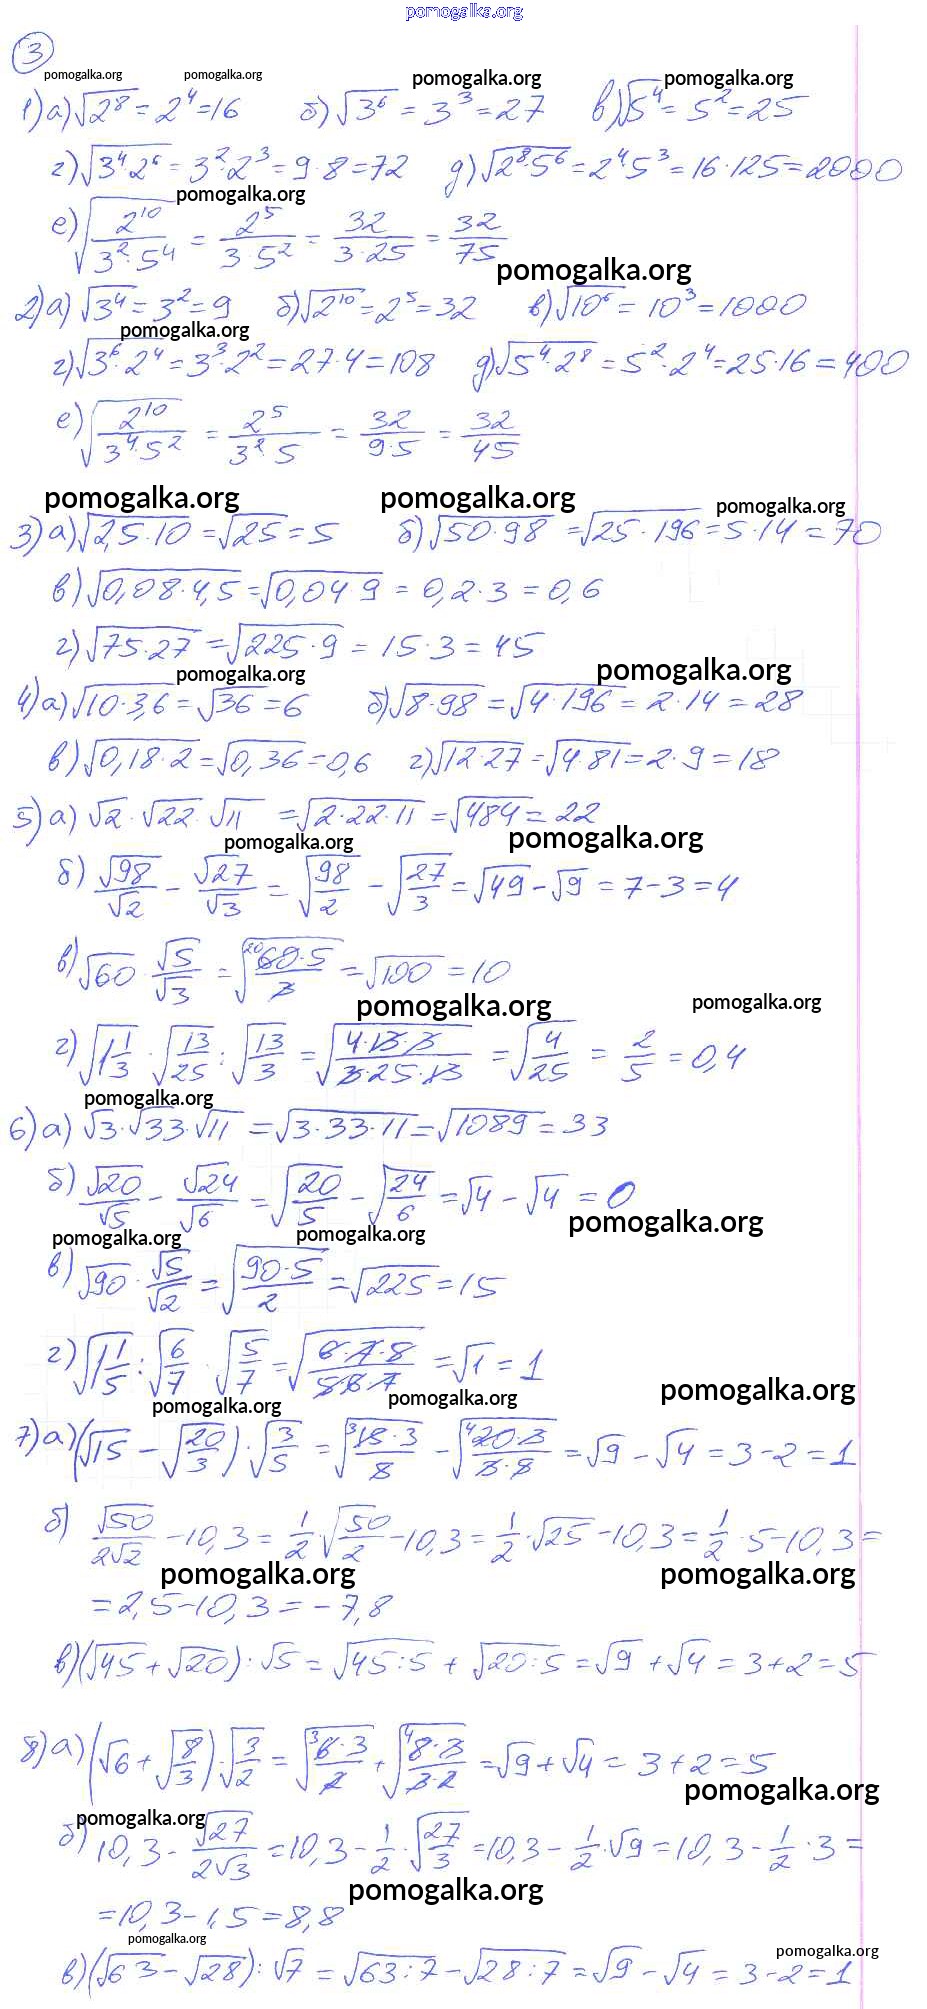 pomogalka.org
3
pomogalka.org pomogalka.org pomogalka.org pomogalka.org
1) а) √2⁸ = 2⁴ = 16 б) √3⁶ = 3³ = 27 в) √5⁴ = 5² = 25
г) √3⁴·2⁶ = 3²·2³ = 9·8 = 72 д) √2⁸·5⁶ = 2⁴·5³ = 16·125 = 2000
pomogalka.org
е) √(2¹⁰/(3²·5⁴)) = 2⁵/(3·5²) = 32/(3·25) = 32/75
pomogalka.org
2) а) √3⁴ = 3² = 9 б) √2¹⁰ = 2⁵ = 32 в) √10⁶ = 10³ = 1000
pomogalka.org
г) √3⁶·2⁴ = 3³·2² = 27·4 = 108 д) √5⁴·2⁸ = 5²·2⁴ = 25·16 = 400
е) √(2¹⁰/(3⁴·5²)) = 2⁵/(3²·5) = 32/(9·5) = 32/45
pomogalka.org pomogalka.org pomogalka.org
3) а) √2,5·10 = √25 = 5 б) √50·98 = √25·196 = 5·14 = 70
в) √0,08·4,5 = √0,04·9 = 0,2·3 = 0,6
г) √75·27 = √225·9 = 15·3 = 45
pomogalka.org pomogalka.org
4) а) √10·3,6 = √36 = 6 б) √8·98 = √4·196 = 2·14 = 28
в) √0,18·2 = √0,36 = 0,6 г) √12·27 = √4·81 = 2·9 = 18
5) а) √2·√22·√11 = √2·22·11 = √484 = 22
pomogalka.org pomogalka.org
б) √98/√2 - √27/√3 = √(98/2) - √(27/3) = √49 - √9 = 7 - 3 = 4
в) √60·√5/√3 = √(²⁰60·5/3) = √100 = 10
pomogalka.org pomogalka.org
г) √(1 1/3)·√(13/25) : √(13/3) = √(4·13·3/(3·25·13)) = √(4/25) = 2/5 = 0,4
pomogalka.org
6) а) √3·√33·√11 = √3·33·11 = √1089 = 33
б) √20/√5 - √24/√6 = √(20/5) - √(24/6) = √4 - √4 = 0
pomogalka.org pomogalka.org pomogalka.org
в) √90·√5/√2 = √(90·5/2) = √225 = 15
г) √(1 1/5) : √(6/7)·√(5/7) = √(6·7·5/(5·6·7)) = √1 = 1
pomogalka.org pomogalka.org pomogalka.org
7) а) (√15 - √(20/3))·√(3/5) = √(³15·3/5) - √(⁴20·3/(3·5)) = √9 - √4 = 3 - 2 = 1
б) √50/(2√2) - 10,3 = 1/2·√(50/2) - 10,3 = 1/2·√25 - 10,3 = 1/2·5 - 10,3 =
pomogalka.org pomogalka.org
= 2,5 - 10,3 = -7,8
в) (√45 + √20) : √5 = √45:5 + √20:5 = √9 + √4 = 3 + 2 = 5
8) а) (√6 + √(8/3))·√(3/2) = √(³6·3/2) + √(⁴8·3/(3·2)) = √9 + √4 = 3 + 2 = 5
pomogalka.org
pomogalka.org
б) 10,3 - √27/(2√3) = 10,3 - 1/2·√(27/3) = 10,3 - 1/2·√9 = 10,3 - 1/2·3 =
pomogalka.org
= 10,3 - 1,5 = 8,8
pomogalka.org pomogalka.org
в) (√63 - √28) : √7 = √63:7 - √28:7 = √9 - √4 = 3 - 2 = 1